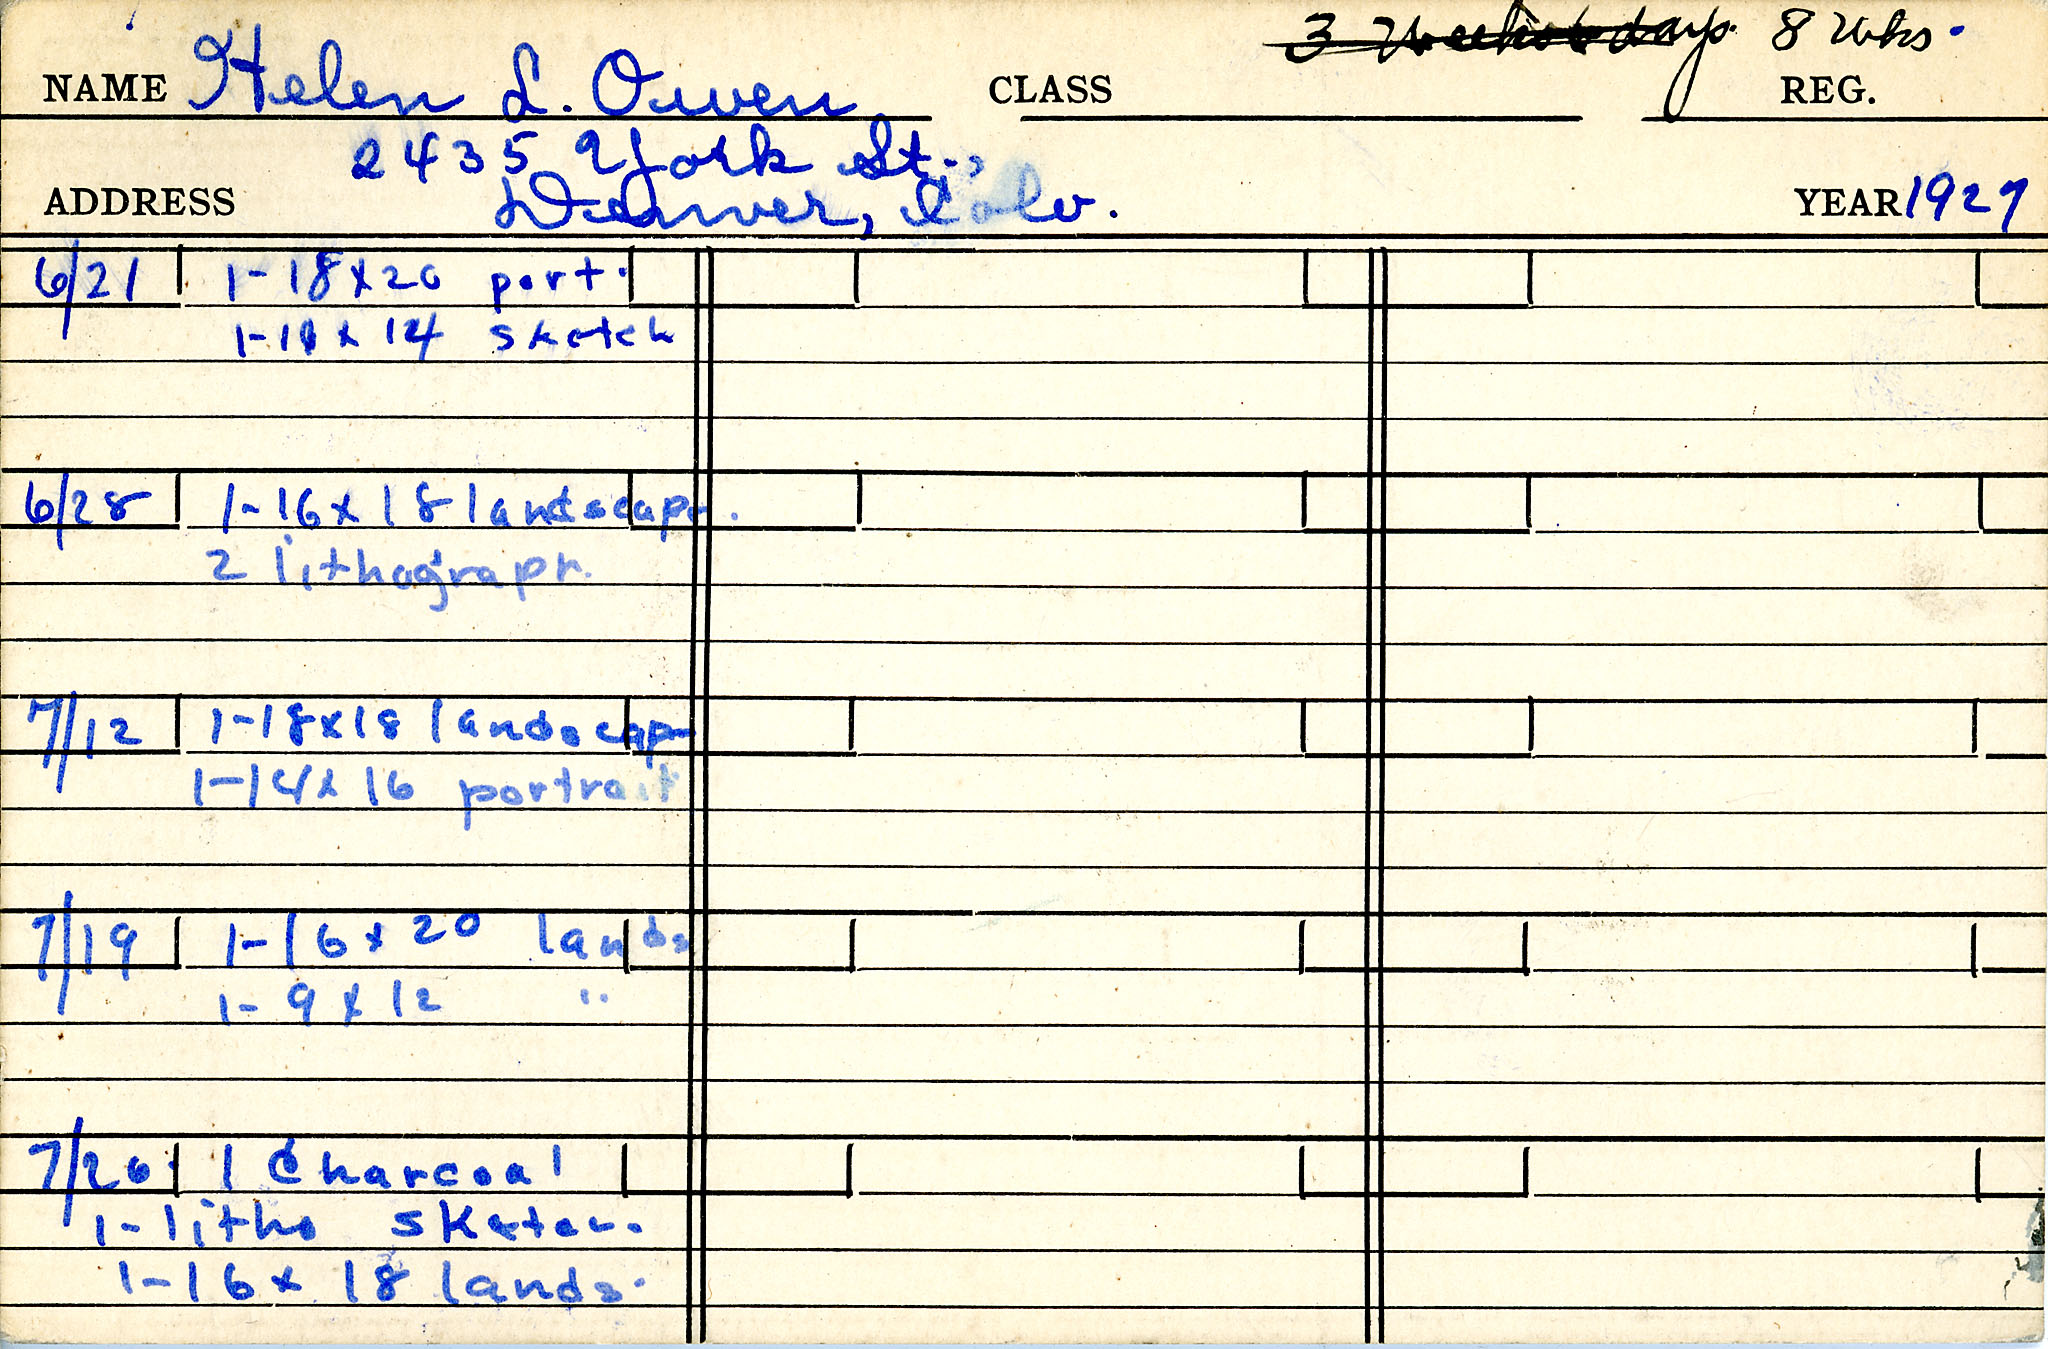 3 Weeks & days. 8 wks.
NAME Helen L. Owen CLASS REG.
2435 York St.,
ADDRESS Denver, Colo. YEAR 1927
6/21 1-18x20 port.
1-11x14 sketch
6/28 1-16x18 landscape.
2 lithograph.
7/12 1-18x18 landscape
1-14x16 portrait
7/19 1-16x20 lands
1-9x12 "
7/26. 1 Charcoal
1-litho sketch.
1-16x18 lands.